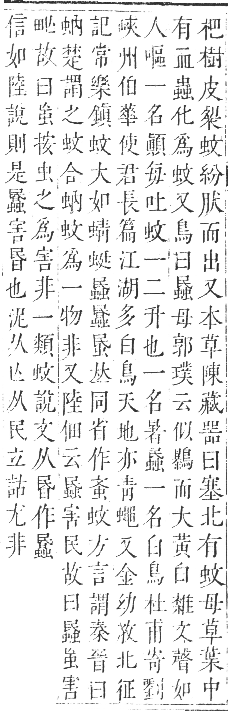 杷樹皮裂蚊紛肰而出又本草陳藏器曰塞北有蚊母草葉中
有血蟲化爲蚊又鳥曰蟁母郭璞云似鷃而大黃白雜文聲如
人嘔一名鷏每吐蚊一二升也一名暑蟁一名白鳥杜甫寄劉
峽州伯華使君長篇江湖多白鳥天地亦靑蠅又金幼孜北征
記常樂鎭蚊大如蜻蜓蟁䘇䖟𠀤同省作蚉蚊方言謂秦晉曰
蚋楚謂之蚊合蚋蚊爲一物非又陸佃云蟁害民故曰蟁䖟害
甿故曰䖟按虫之爲害非一類蚊說文从昬作䘇
信如陸說則是蟁害昬也泥从亾从民立詁尤非